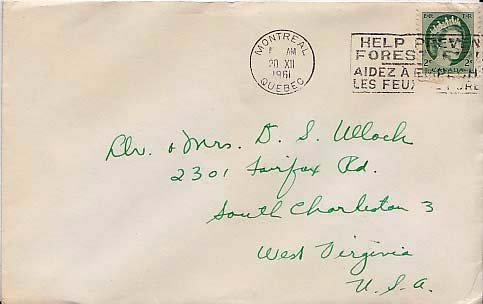 MONTREAL
AM
20 XII
1961
QUEBEC
HELP PREVEN
FOREST
AIDEZ À
LES FEUX
E R
E R
2¢ CANADA 2¢
Dr. & Mrs. D. S. Ulloch
2301 Fairfax Rd.
South Charleston 3
West Virginia
U. S. A.